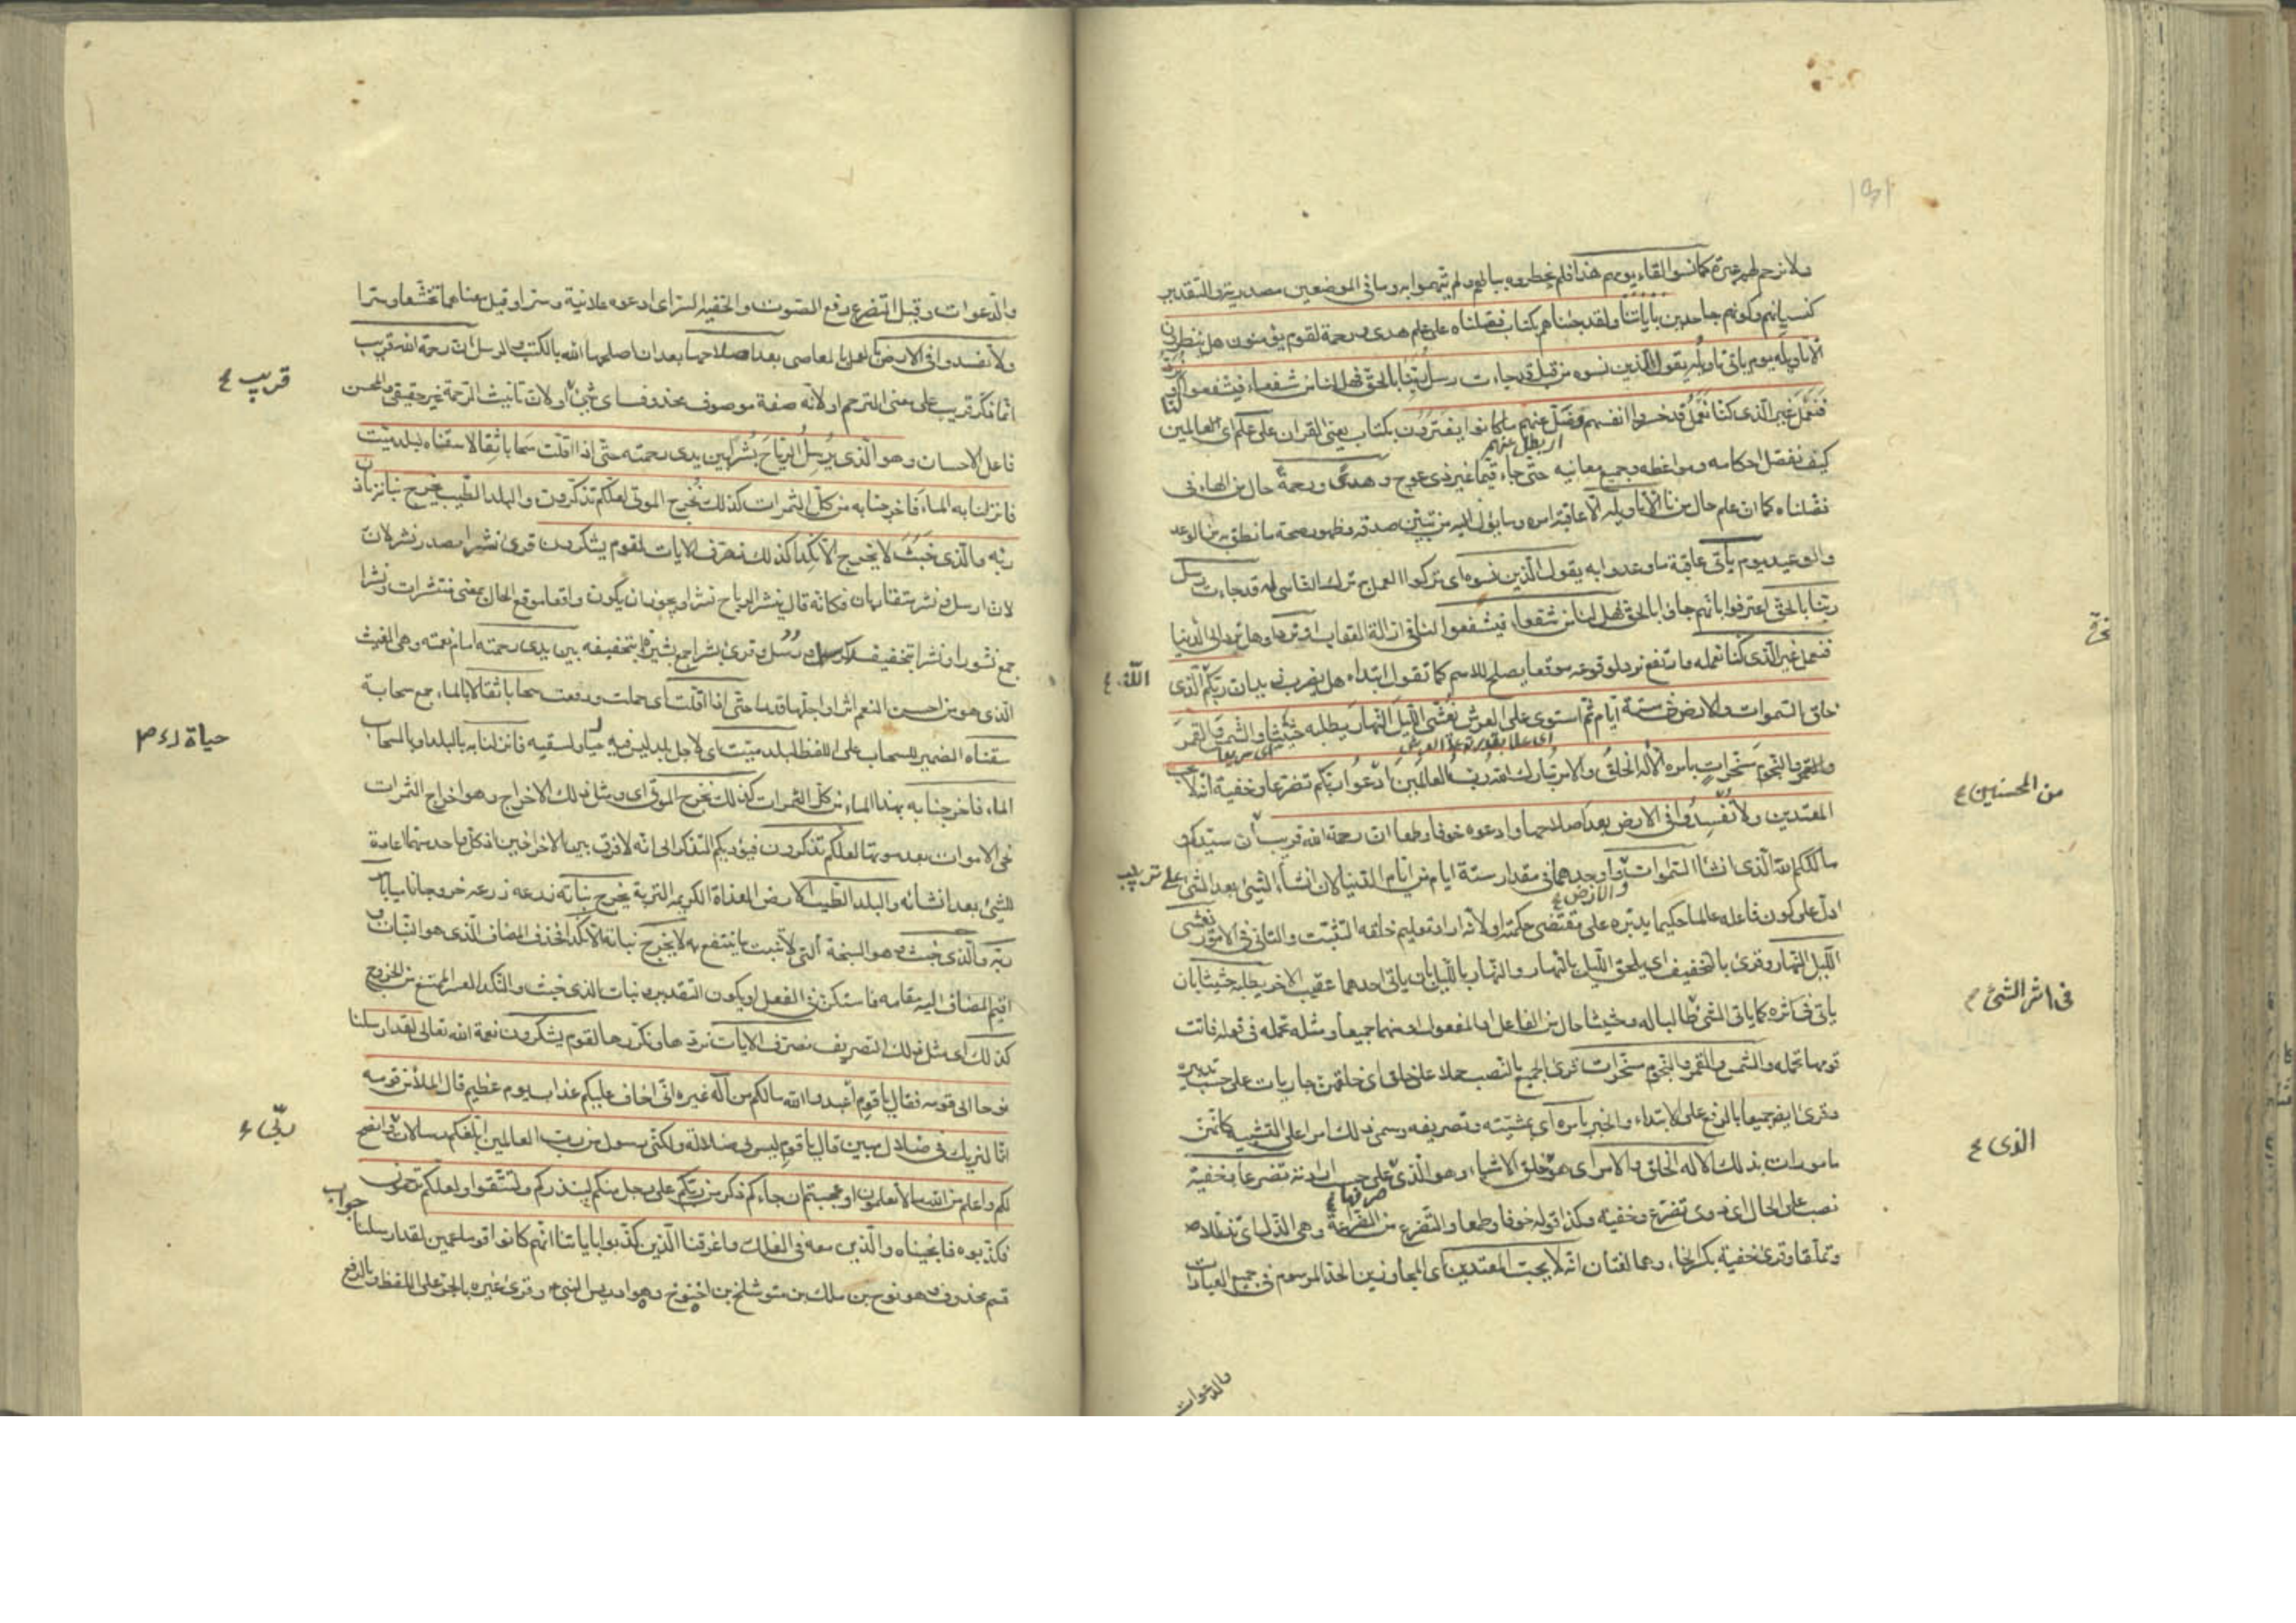 ولا نرحمهم عبرة كما نسوا لقاء يومهم هذا فلم يخطروه ببالهم ولم يهتموا به وما فى الموضعين مصدرية والتقدير
كنسيانهم وكونهم جاحدين باياتنا ولقد جئناهم بكتاب فصلناه على علم هدى ورحمة لقوم يؤمنون هل ينظرون
الا تاويله يوم ياتى تاويله يقول الذين نسوه من قبل قد جاءت رسل ربنا بالحق فهل لنا من شفعاء فيشفعوا لنا او نرد
فنعمل غير الذى كنا نعمل قد خسروا انفسهم وضل عنهم ما كانوا يفترون بكتاب يعنى القران على علم اى عالمين
اى بطل عنهم
كيف نفصل احكامه ومواعظه وجميع معانيه حتى جاء قيما غير ذى عوج وهدى ورحمة حال من الهاء فى
فصلناه كما ان علم حال من نا الا تاويله الا عاقبة امره وما يؤل اليه من تبيين صدقه وظهور صحة ما نطق به من الوعد
والوعيد يوم ياتى عاقبة ما وعدوا به يقول الذين نسوه اى تركوا العمل به ترك الناسى له قد جاءت رسل
ربنا بالحق اعترفوا بانهم جاؤا بالحق فهل لنا من شفعاء فيشفعوا لنا فى ازالة العقاب او نرد او هل نرد الى الدنيا
فنعمل غير الذى كنا نعمله وارتفع نرد لوقوعه موقعا يصلح للاسم كما تقول ابتداء هل يضرب زيد ان ربكم الذى
الله ع
خلق السموات والارض فى ستة ايام ثم استوى على العرش يغشى الليل النهار يطلبه حثيثا والشمس والقمر
اى سريعا
والنجوم مسخرات بامره الا له الخلق والامر تبارك الله رب العالمين ادعوا ربكم تضرعا وخفية انه لا يحب
المعتدين ولا تفسدوا فى الارض بعد اصلاحها وادعوه خوفا وطمعا ان رحمة الله قريب ان سيدكم و
من المحسنين ع
مالككم الله الذى انشأ السموات واوجدهما فى مقدار ستة ايام من ايام الدنيا لان انشاء الشئ بعد الشئ على ترتيب
والارض ع
ادل على كون فاعله عالما حكيما يدبره على مقتضى حكمته او لانه اراد تعليم خلقه التثبت والتانى فى الامور يغشى
الليل النهار وقرئ بالتخفيف اى يلحق الليل بالنهار والنهار بالليل بان ياتى احدهما عقيب الاخر يطلبه حثيثا بان
ياتى فى اثره كما ياتى الشئ طالبا له وحثيثا حال من الفاعل او المفعول او منهما جميعا ومثله تحمله فى قوله فاتت
فى اثر الشئ م
قومها تحمله والشمس والقمر والنجوم مسخرات قرئ الجميع بالنصب حملا على خلق اى خلقهن جاريات على حسب تدبيره
وقرئ ايضا جميعا بالرفع على الابتداء والخبر بامره اى بمشيته وتصريفه وسمى ذلك امرا على التشبيه كانهن
مامورات بذلك الا له الخلق والامر اى هو خلق الاشياء وهو الذى على حسب ارادته تضرعا وخفية
الذى ع
صرفها ع
نصب على الحال اى ذوى تضرع وخفية وكذا قوله خوفا وطمعا والتضرع من الضراعة وهى الذل اى تذللا
وتملقا وقرئ خفية بكسر الخاء وهما لغتان انه لا يحب المعتدين اى المجاوزين الحد المرسوم فى جميع العبادات
والدعوات
والدعوات وقيل التضرع رفع الصوت والخفية السر اى ادعوه علانية وسرا وقيل معناهما تخشعا وسرا
ولا تفسدوا فى الارض بالعمل بالمعاصى بعد اصلاحها بعد ان اصلحها الله بالكتب والرسل ان رحمة الله قريب
انما ذكر قريب على معنى الترحم او لانه صفة موصوف محذوف اى شئ او لان تانيث الرحمة غير حقيقى والمحسن
قريب ع
فاعل الاحسان وهو الذى يرسل الرياح بشرا بين يدى رحمته حتى اذا اقلت سحابا ثقالا سقناه لبلد ميت
فانزلنا به الماء فاخرجنا به من كل الثمرات كذلك نخرج الموتى لعلكم تذكرون والبلد الطيب يخرج نباته باذن
ربه والذى خبث لا يخرج الا نكدا كذلك نصرف الايات لقوم يشكرون قرئ نشرا مصدر نشر لان
لان ارسل ونشر متقاربان فكانه قال ينشر الرياح نشرا ويجوز ان يكون واقعا موقع الحال بمعنى منتشرات ونشرا
جمع نشور ونشرا بتخفيف كرسل ورسل وقرئ بشرا جمع بشير وبتخفيفه بين يدى رحمته امام نعمته وهى الغيث
الذى هو من احسن النعم اثرا واجلها قدرا حتى اذا اقلت اى حملت ورفعت سحابا ثقالا بالماء جمع سحابة
سقناه الضمير للسحاب على اللفظ لبلد ميت اى لاجل بلد ليس فيه حيا ولسقيه فانزلنا به بالبلد او بالسحاب
حياة
الماء فاخرجنا به بهذا الماء من كل الثمرات كذلك نخرج الموتى اى ومثل ذلك الاخراج وهو اخراج الثمرات
نحى الاموات بعد موتها لعلكم تذكرون فيؤديكم التذكر الى انه لا فرق بين الاخراجين اذ كل واحد منهما اعادة
للشئ بعد انشائه والبلد الطيب الارض العذاة الكريمه التربة يخرج نباته زرعه خروجا ناميا باذن
ربه والذى خبث وهو السبخة التى لا تنبت ما ينتفع به لا يخرج نباته الا نكدا فحذف المضاف الذى هو النبات و
اقيم المضاف اليه مقامه فاستكن فى الفعل او يكون التقدير ونبات الذى خبث والنكد العسر الممتنع من الخروج
كذلك اى مثل ذلك التصريف نصرف الايات نرددها ونكررها لقوم يشكرون نعمة الله تعالى لقد ارسلنا
نوحا الى قومه فقال يا قوم اعبدوا الله مالكم من اله غيره انى اخاف عليكم عذاب يوم عظيم قال الملأ من قومه
انا لنريك فى ضلال مبين قال يا قوم ليس بى ضلالة ولكنى رسول من رب العالمين ابلغكم رسالات وانصح
لكم واعلم من الله ما لا تعلمون او عجبتم ان جاءكم ذكر من ربكم على رجل منكم لينذركم ولتتقوا ولعلكم ترحمون
فكذبوه فانجيناه والذين معه فى الفلك واغرقنا الذين كذبوا باياتنا انهم كانوا قوما عمين لقد ارسلنا جواب
قسم محذوف وهو نوح بن ملك بن متوشلخ بن اخنوخ وهو ادريس النبى وقرئ غيره بالجر على اللفظ وبالرفع